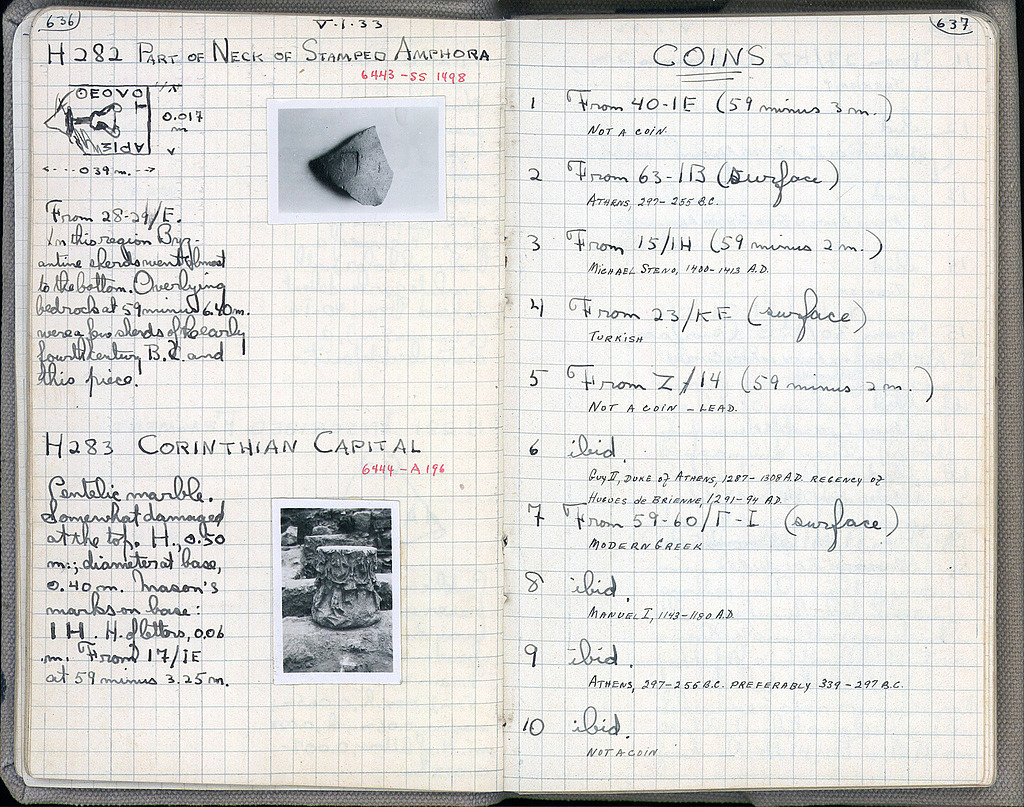 636
V·1·33
H 282 PART OF NECK OF STAMPED AMPHORA
6443 - SS 1498
0.017
m
039 m.
From 28-29/E.
In this region Byz-
antine sherds went almost
to the bottom. Overlying
bedrock at 59 minus 6.40 m.
were a few sherds of the early
fourth century B.C. and
this piece.
H 283 CORINTHIAN CAPITAL
6444 - A 196
Pentelic marble.
Somewhat damaged
at the top. H., 0.50
m.; diameter at base,
0.40 m. Mason's
marks on base:
I H. H. of letters, 0.06
m. From 17/ΙΕ
at 59 minus 3.25 m.
637
COINS
1 From 40-ΙΕ (59 minus 3 m.)
NOT A COIN.
2 From 63-ΙΒ (surface)
ATHENS, 297-255 B.C.
3 From 15/ΙΗ (59 minus 2 m.)
MICHAEL STENO, 1400-1413 A.D.
4 From 23/ΚΕ (surface)
TURKISH
5 From Z/14 (59 minus 2 m.)
NOT A COIN - LEAD.
6 ibid.
GUY II, DUKE of ATHENS, 1287-1308 A.D. REGENCY of
HUGUES de BRIENNE, 1291-94 A.D.
7 From 59-60/Γ-Ι (surface)
MODERN GREEK
8 ibid.
MANUEL I, 1143-1180 A.D.
9 ibid.
ATHENS, 297-256 B.C. PREFERABLY 339-297 B.C.
10 ibid.
NOT A COIN